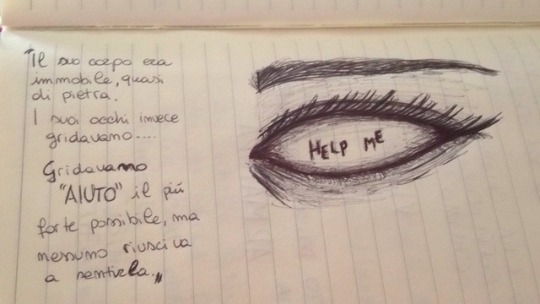 "Il suo corpo era
immobile, quasi
di pietra.
I suoi occhi invece
gridavano....
Gridavamo
"AIUTO" il più
forte possibile, ma
nessuno riusciva
a sentirla."
HELP ME